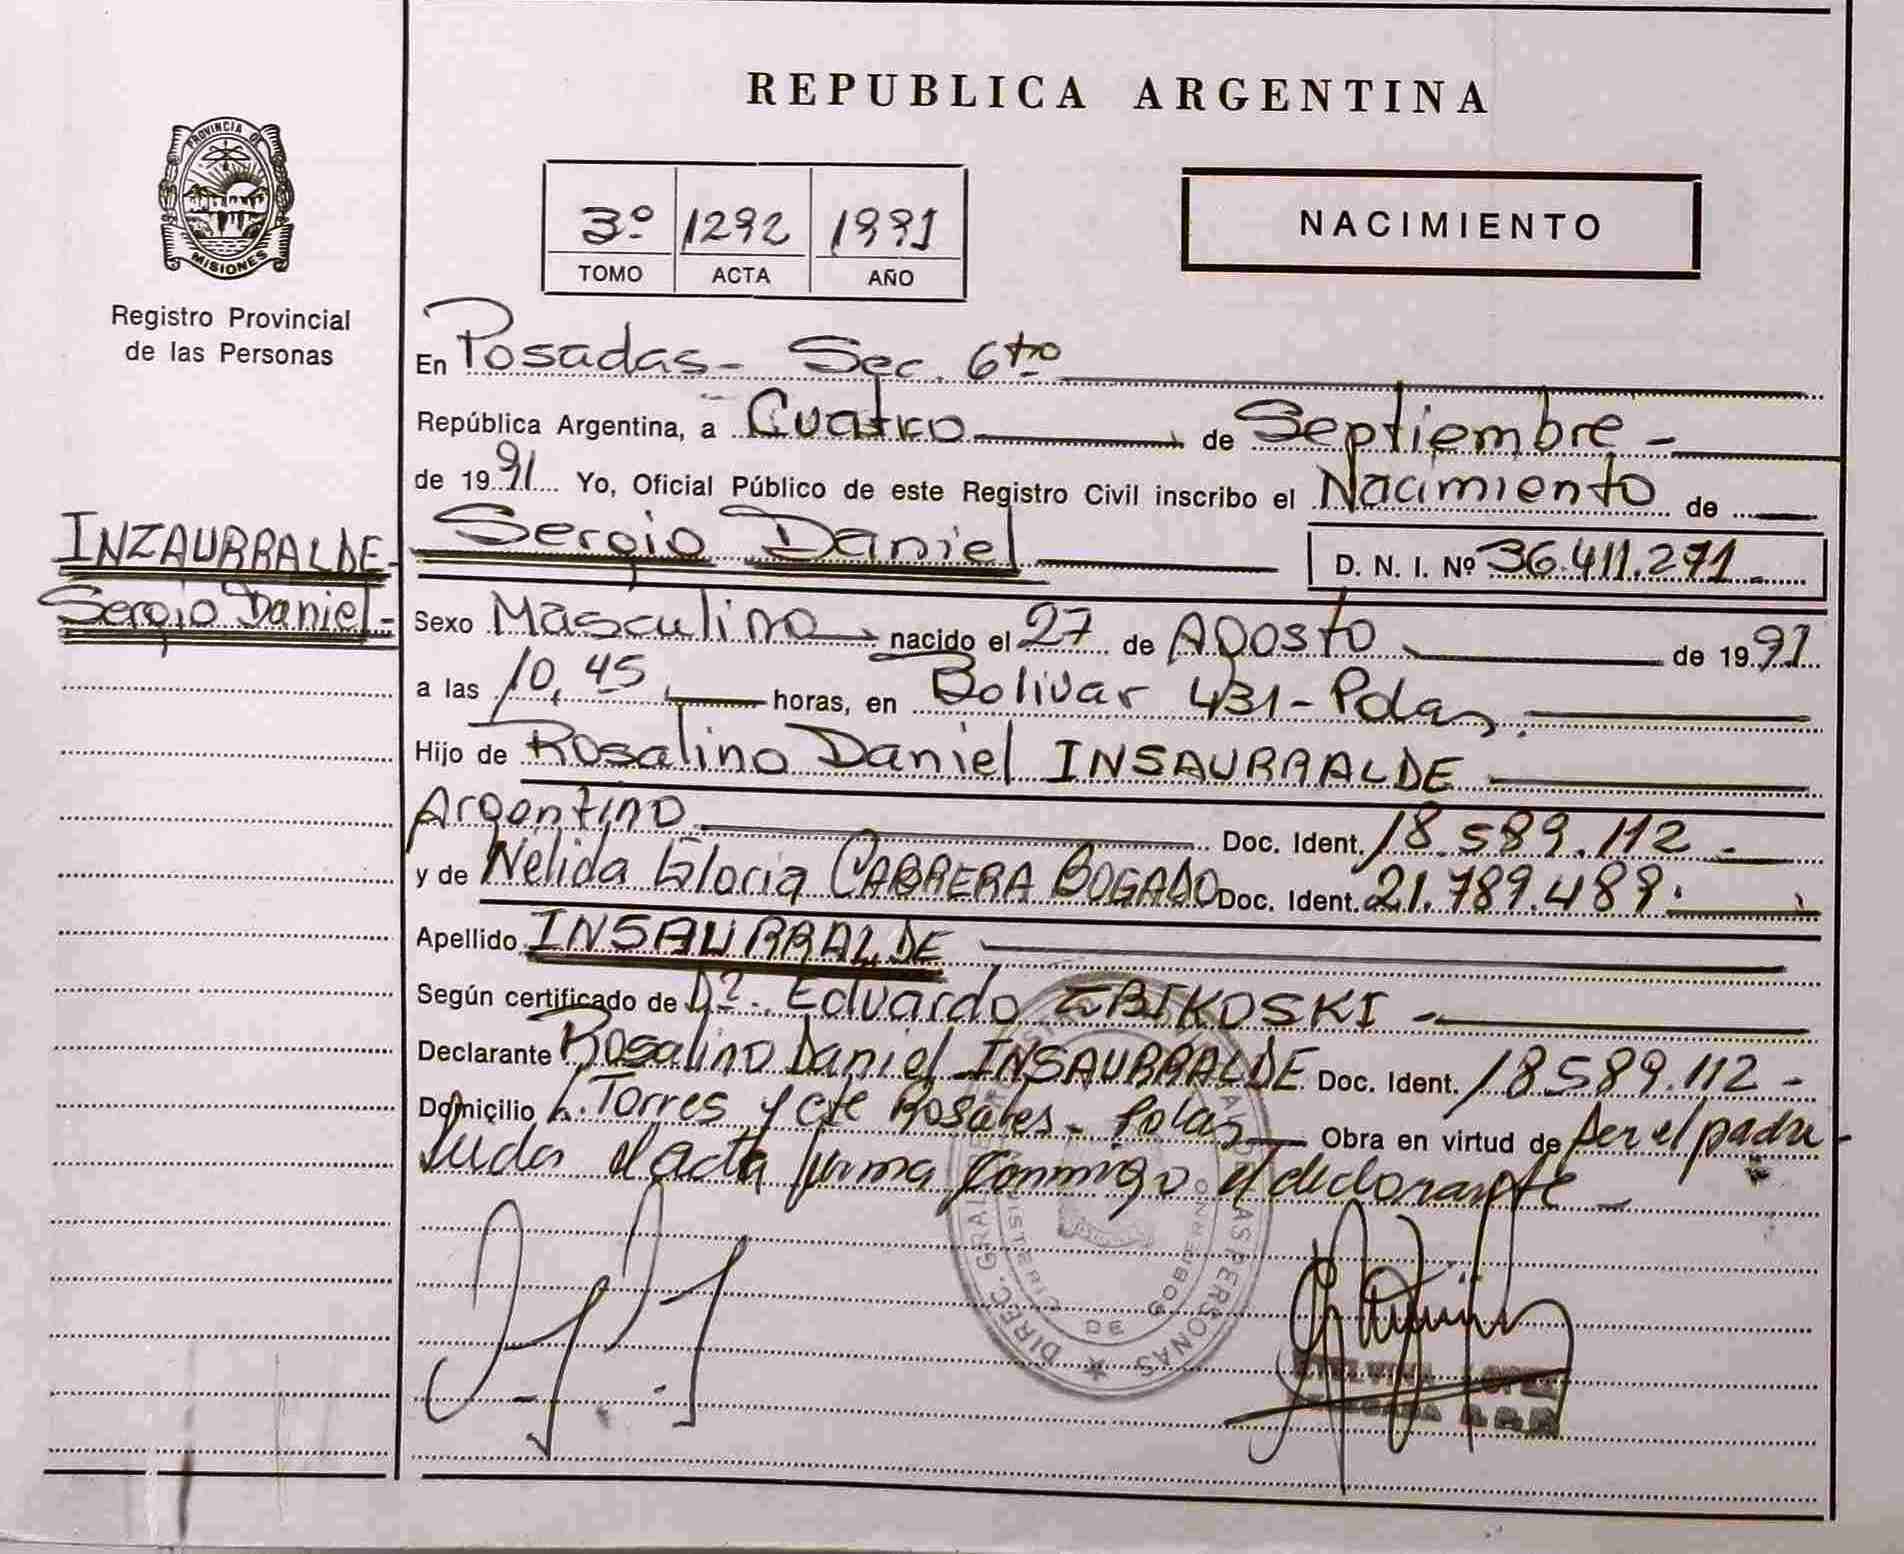 REPUBLICA ARGENTINA
PROVINCIA DE
MISIONES
Registro Provincial
de las Personas
3º 1292 1991
TOMO ACTA AÑO
NACIMIENTO
En Posadas- Sec. 6to
República Argentina, a Cuatro de Septiembre-
de 1991 Yo, Oficial Público de este Registro Civil inscribo el Nacimiento de
INZAURRALDE-
Sergio Daniel-
Sergio Daniel D. N. I. Nº 36.411.271
Sexo Masculino nacido el 27 de Agosto de 1991
a las 10,45 horas, en Bolivar 431-Pdas.
Hijo de Rosalino Daniel INSAURRALDE
Argentino Doc. Ident. 18.589.112-
y de Nelida Gloria CABRERA BOGADO Doc. Ident. 21.789.489.
Apellido INSAURRALDE
Según certificado de Dº. Eduardo ZBIKOSKI-
Declarante Rosalino Daniel INSAURRALDE Doc. Ident. 18589.112-
Domicilio L. Torres y cte Rosales- Pdas Obra en virtud de ser el padre-
Leida el acta firma conmigo el declarante-
DIREC. GRAL. PERSONAS
MINISTERIO DE GOBIERNO
LOPEZ